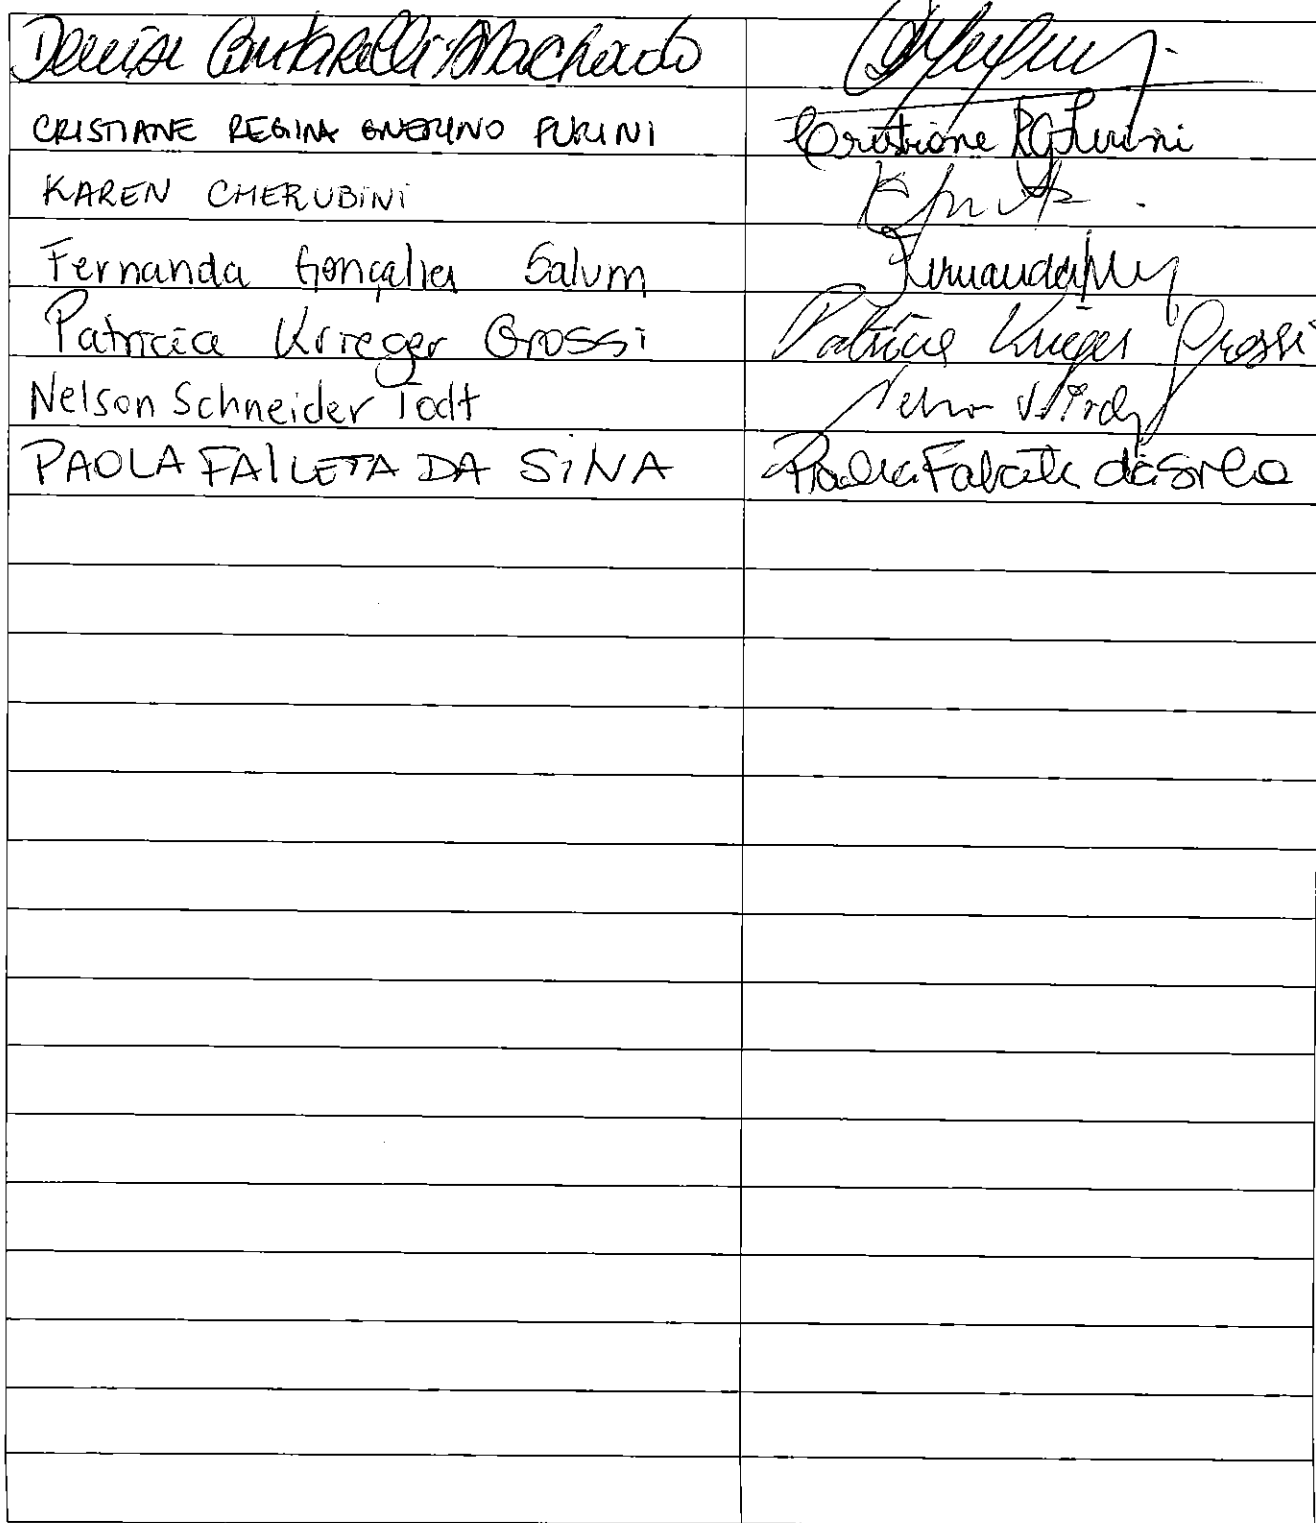 Denise Cantarelli Machado
CRISTIANE REGINA GUERINO FURINI Cristiane RG Furini
KAREN CHERUBINI
Fernanda Gonçalves Salum
Patricia Krieger Grossi Patricia Krieger Grossi
Nelson Schneider Todt
PAOLA FALCETA DA SILVA Paola Falceta da Silva